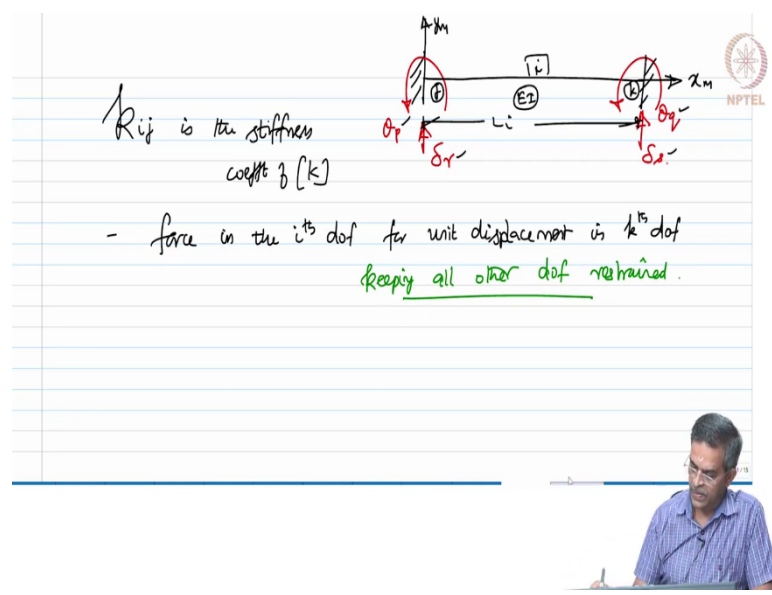 yₘ
i
xₘ
NPTEL
j
EI
k
θp
Li
θq
δr
δs
Kij is the stiffness
coefft of [K]
- force in the iᵗʰ dof for unit displacement in kᵗʰ dof
keeping all other dof restrained.